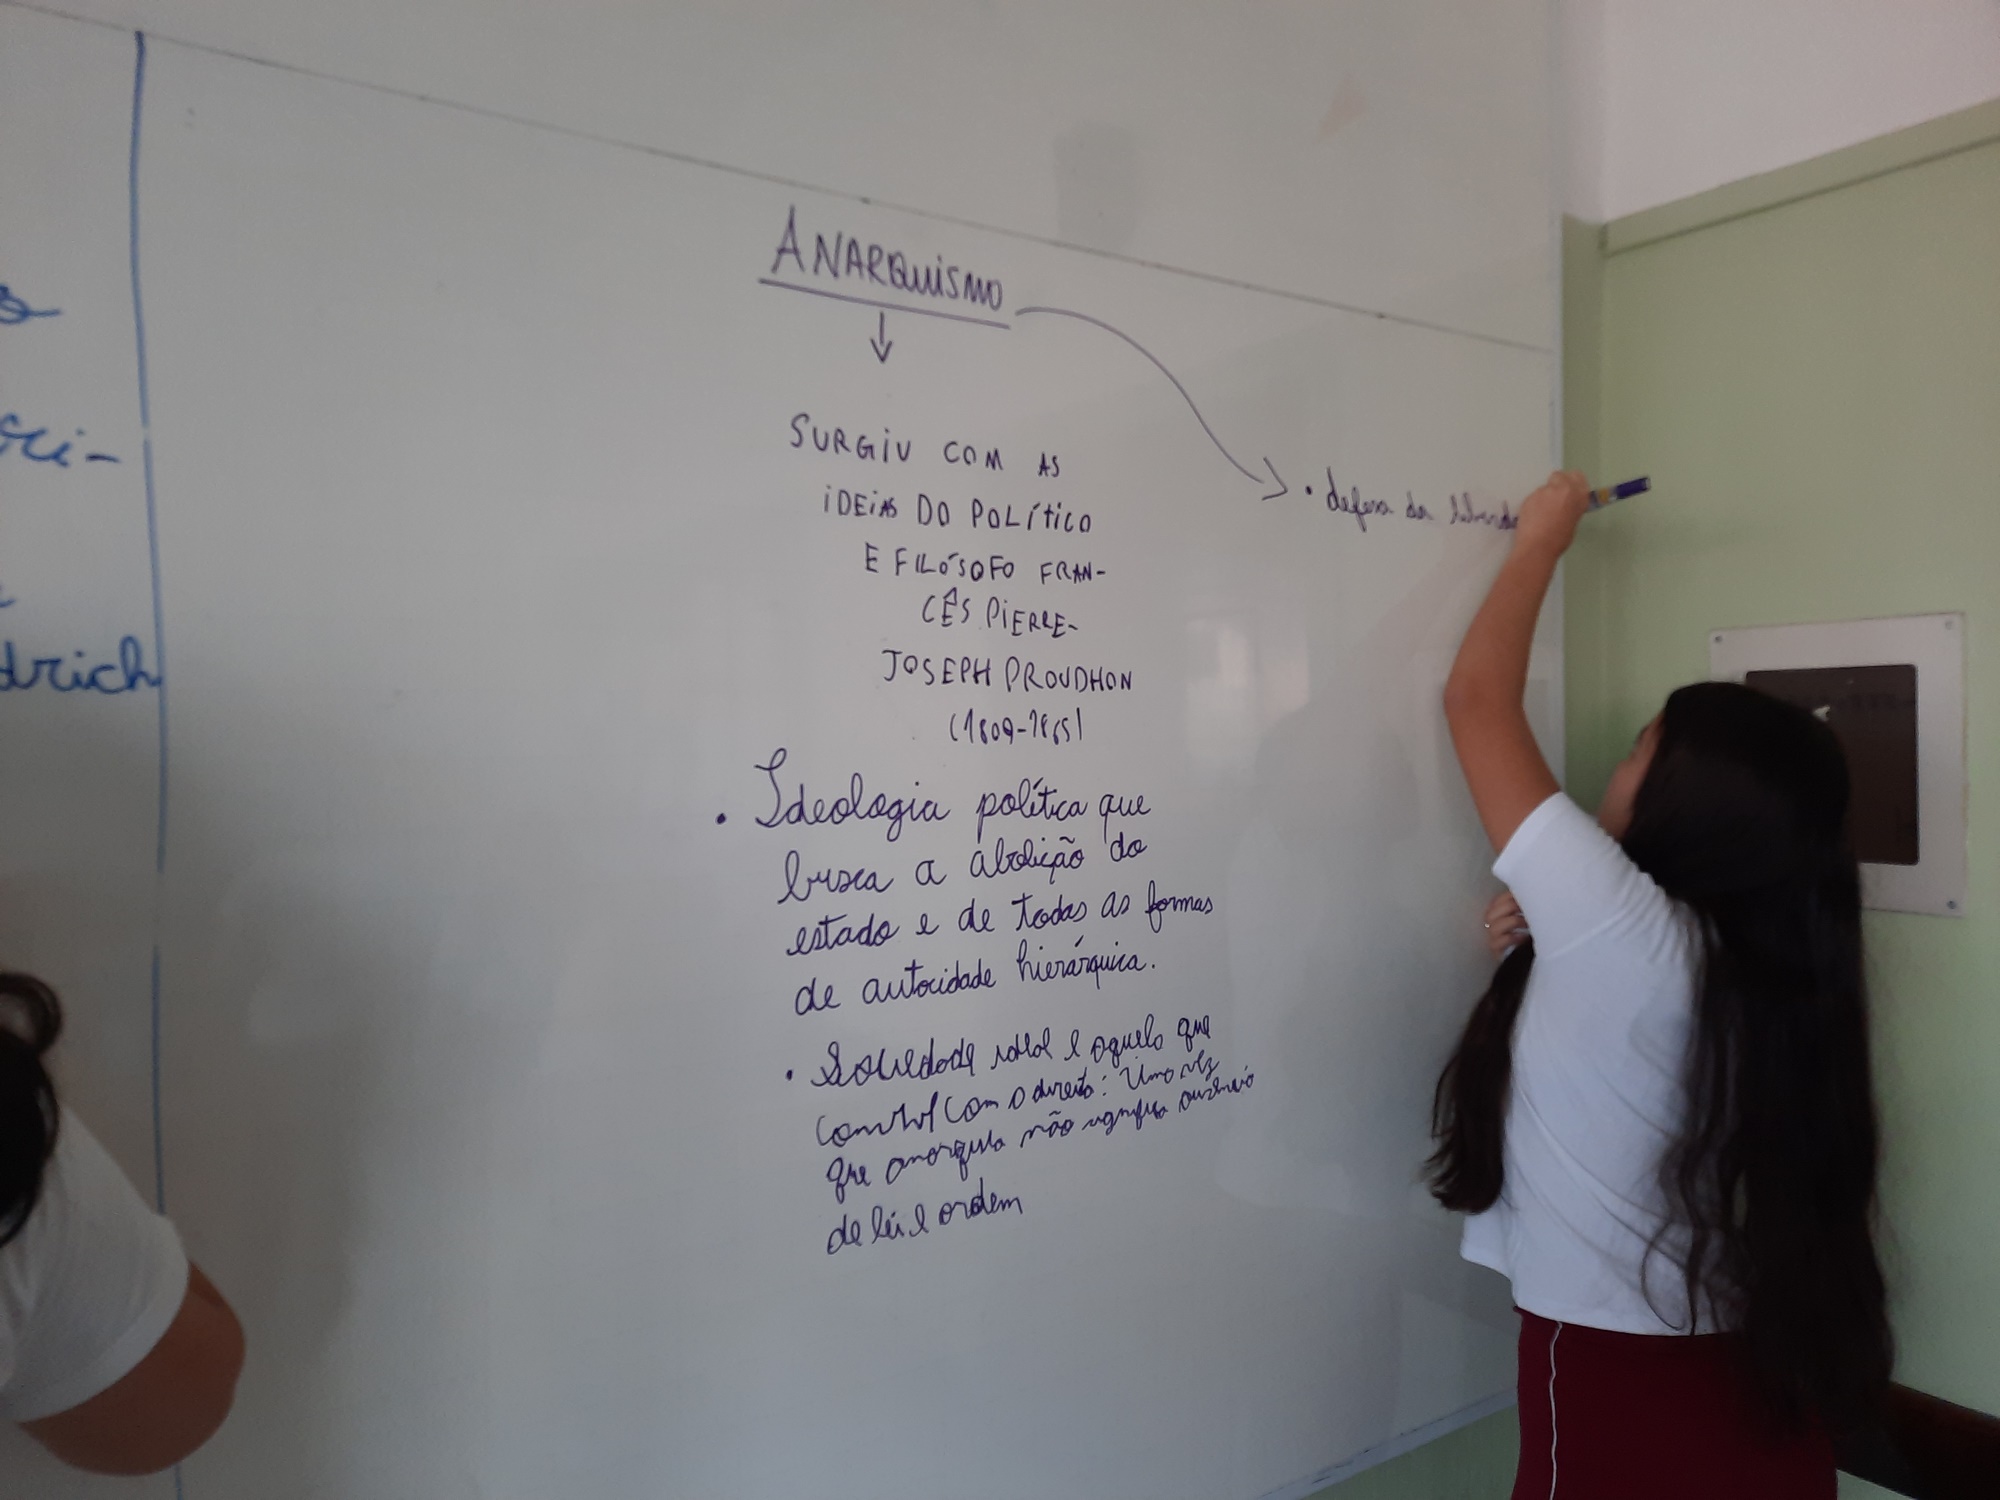 ANARQUISMO
SURGIU COM AS
IDEIAS DO POLÍTICO
E FILÓSOFO FRAN-
CÊS PIERRE-
JOSEPH PROUDHON
(1809-1865)
• Ideologia política que
busca a abolição do
estado e de todas as formas
de autoridade hierárquica.
• Sociedade ideal e aquela que
com o direito: Uma vez
que anarquia não significa ausência
de lei e ordem
• defesa da
ri-
drich